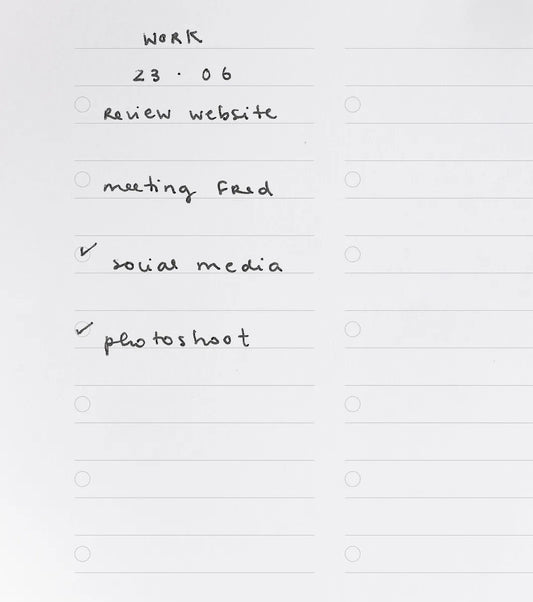 WORK
23 · 06
Review website
meeting Fred
✓ social media
✓ photoshoot